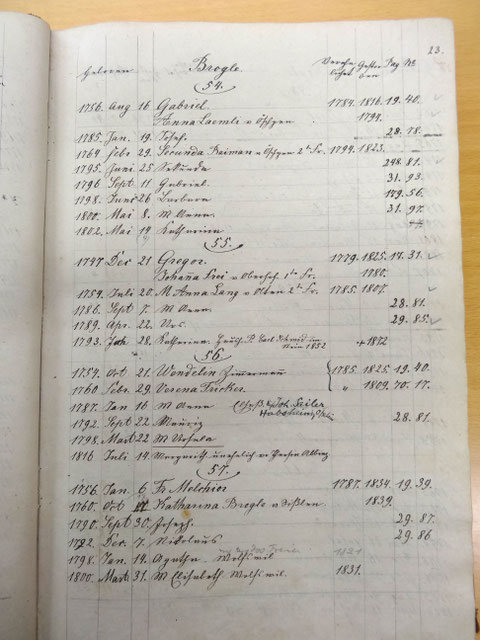 23.
Geboren Brogle. Verehe- Gestor- Pag. No
lichet ben
54.
1756. Aug 16 Gabriel. 1784. 1816. 19. 40.
Anna Laemli v Öffgen 1794.
1785. Jan. 19. Joseph. 28. 78.
1764 Febr 29. Secunda Reiman v Öffgen 2te Fr. 1799. 1823.
1795. Juni 25 Sekunda 248. 81.
1796 Sept 11 Gabriel. 31. 93.
1798. Juni 26 Barbara 149. 56.
1800. Mai 8. M Anna. 31. 97.
1802. Mai 19 Katharina
55.
1747 Dec 21 Gregor. 1779. 1825. 17. 31.
Johaña Frei v Oberhof 1te Fr. 1780.
1754. Juli 20. M Anna Lang v Olten 2te Fr. 1785. 1807.
1786. Sept 7. M Anna. 28. 81.
1789. Apr. 22. Urs. 29. 85.
1793. 28. Katharina. P. Karl Schmid im Stein 1832 + 1872
56.
1754. Oct 21. Wendelin Zimermañ 1785. 1825. 19. 40.
1760 Febr. 29. Verena Fricker. " 1809. 70. 17.
1787. Jan 16 M Anna Joh. Seiler,
1792. Sept 22 Mauriz 28. 81.
1798. Mart 22 M Ursula
1816 Juli 14. Margareth unehelich
57.
1756. Jan. 6 Fr. Melchior 1787. 1834. 19. 39.
1760. Oct Katharina Brogle v Sißlen 1839.
1790. Sept 30. Joseph. 29. 87.
1792. Dec. 7. Nikolaus 29. 86
1798. Jan. 14. Agatha
1800. Mart. 31. M Elisabeth 1831.